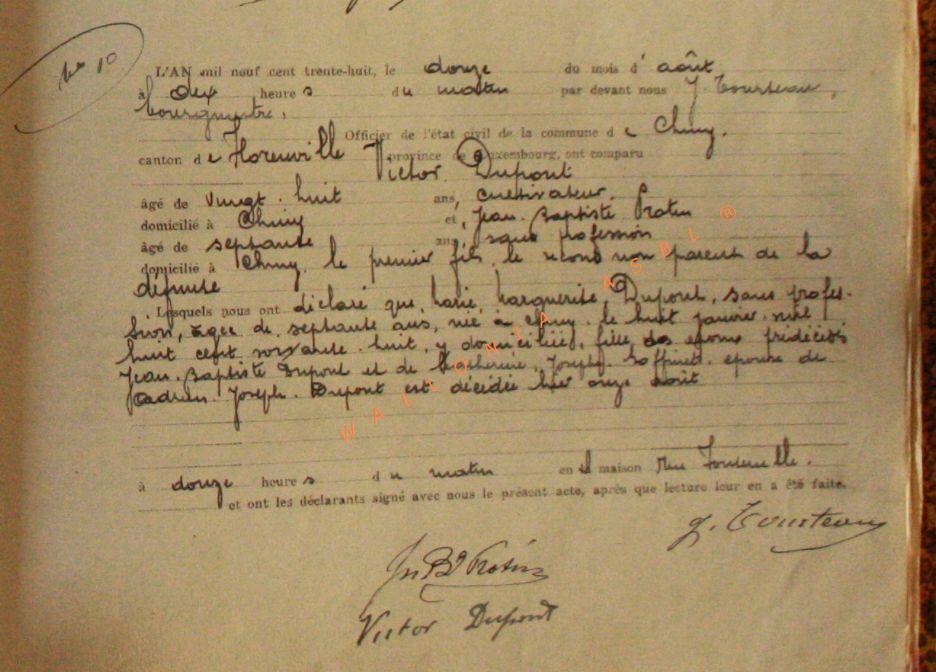 No 10
L'AN mil neuf cent trente-huit, le douze du mois d' août
à dix heures du matin par devant nous J. Tourteau,
bourgmestre,
Officier de l'état civil de la commune de Chiny.
canton de Florenville province de Luxembourg, ont comparu
Victor Dupont
âgé de vingt-huit ans, cultivateur.
domicilié à Chiny et Jean-Baptiste Protin
âgé de septante ans, sans profession
domicilié à Chiny, le premier fils, le second non parent de la
défunte
Lesquels nous ont déclaré que Marie Marguerite Dupont, sans profes-
sion, âgée de septante ans, née à Chiny, le huit janvier mil
huit cent soixante-huit, y domiciliée, fille des époux prédécédés
Jean-Baptiste Dupont et de Catherine Joseph épouse de
Joseph Dupont est décédée hier onze août
à douze heures du matin en sa maison rue
et ont les déclarants signé avec nous le présent acte, après que lecture leur en a été faite.
J. Tourteau
Jn Bte Protin
Victor Dupont
WALLONIA ASBL ®